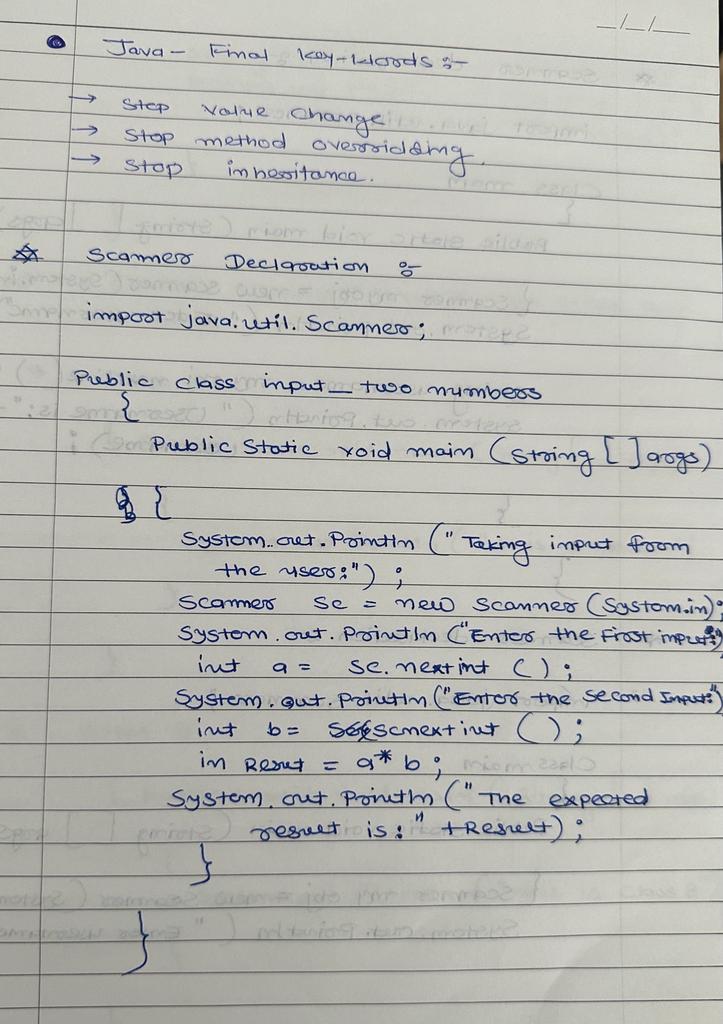 _/_/_
Java - Final key-Words :-
→ Stop value change
→ Stop method overridding.
→ Stop inheritance.
Scanner Declaration :-
import java.util.Scanner;
Public class input_two numbers
{
Public Static void main (String [ ] args)
{
System..out.Println (" Taking input from
the user:") ;
Scanner Sc = new Scanner (System.in);
System.out.Println ("Enter the First input:")
int a = Sc.nextint ( ) ;
System.out.Println ("Enter the Second Input:")
int b = scnextint ( ) ;
in Result = a* b ;
System.out.Println (" The expected
result is : " +Result) ;
}
}